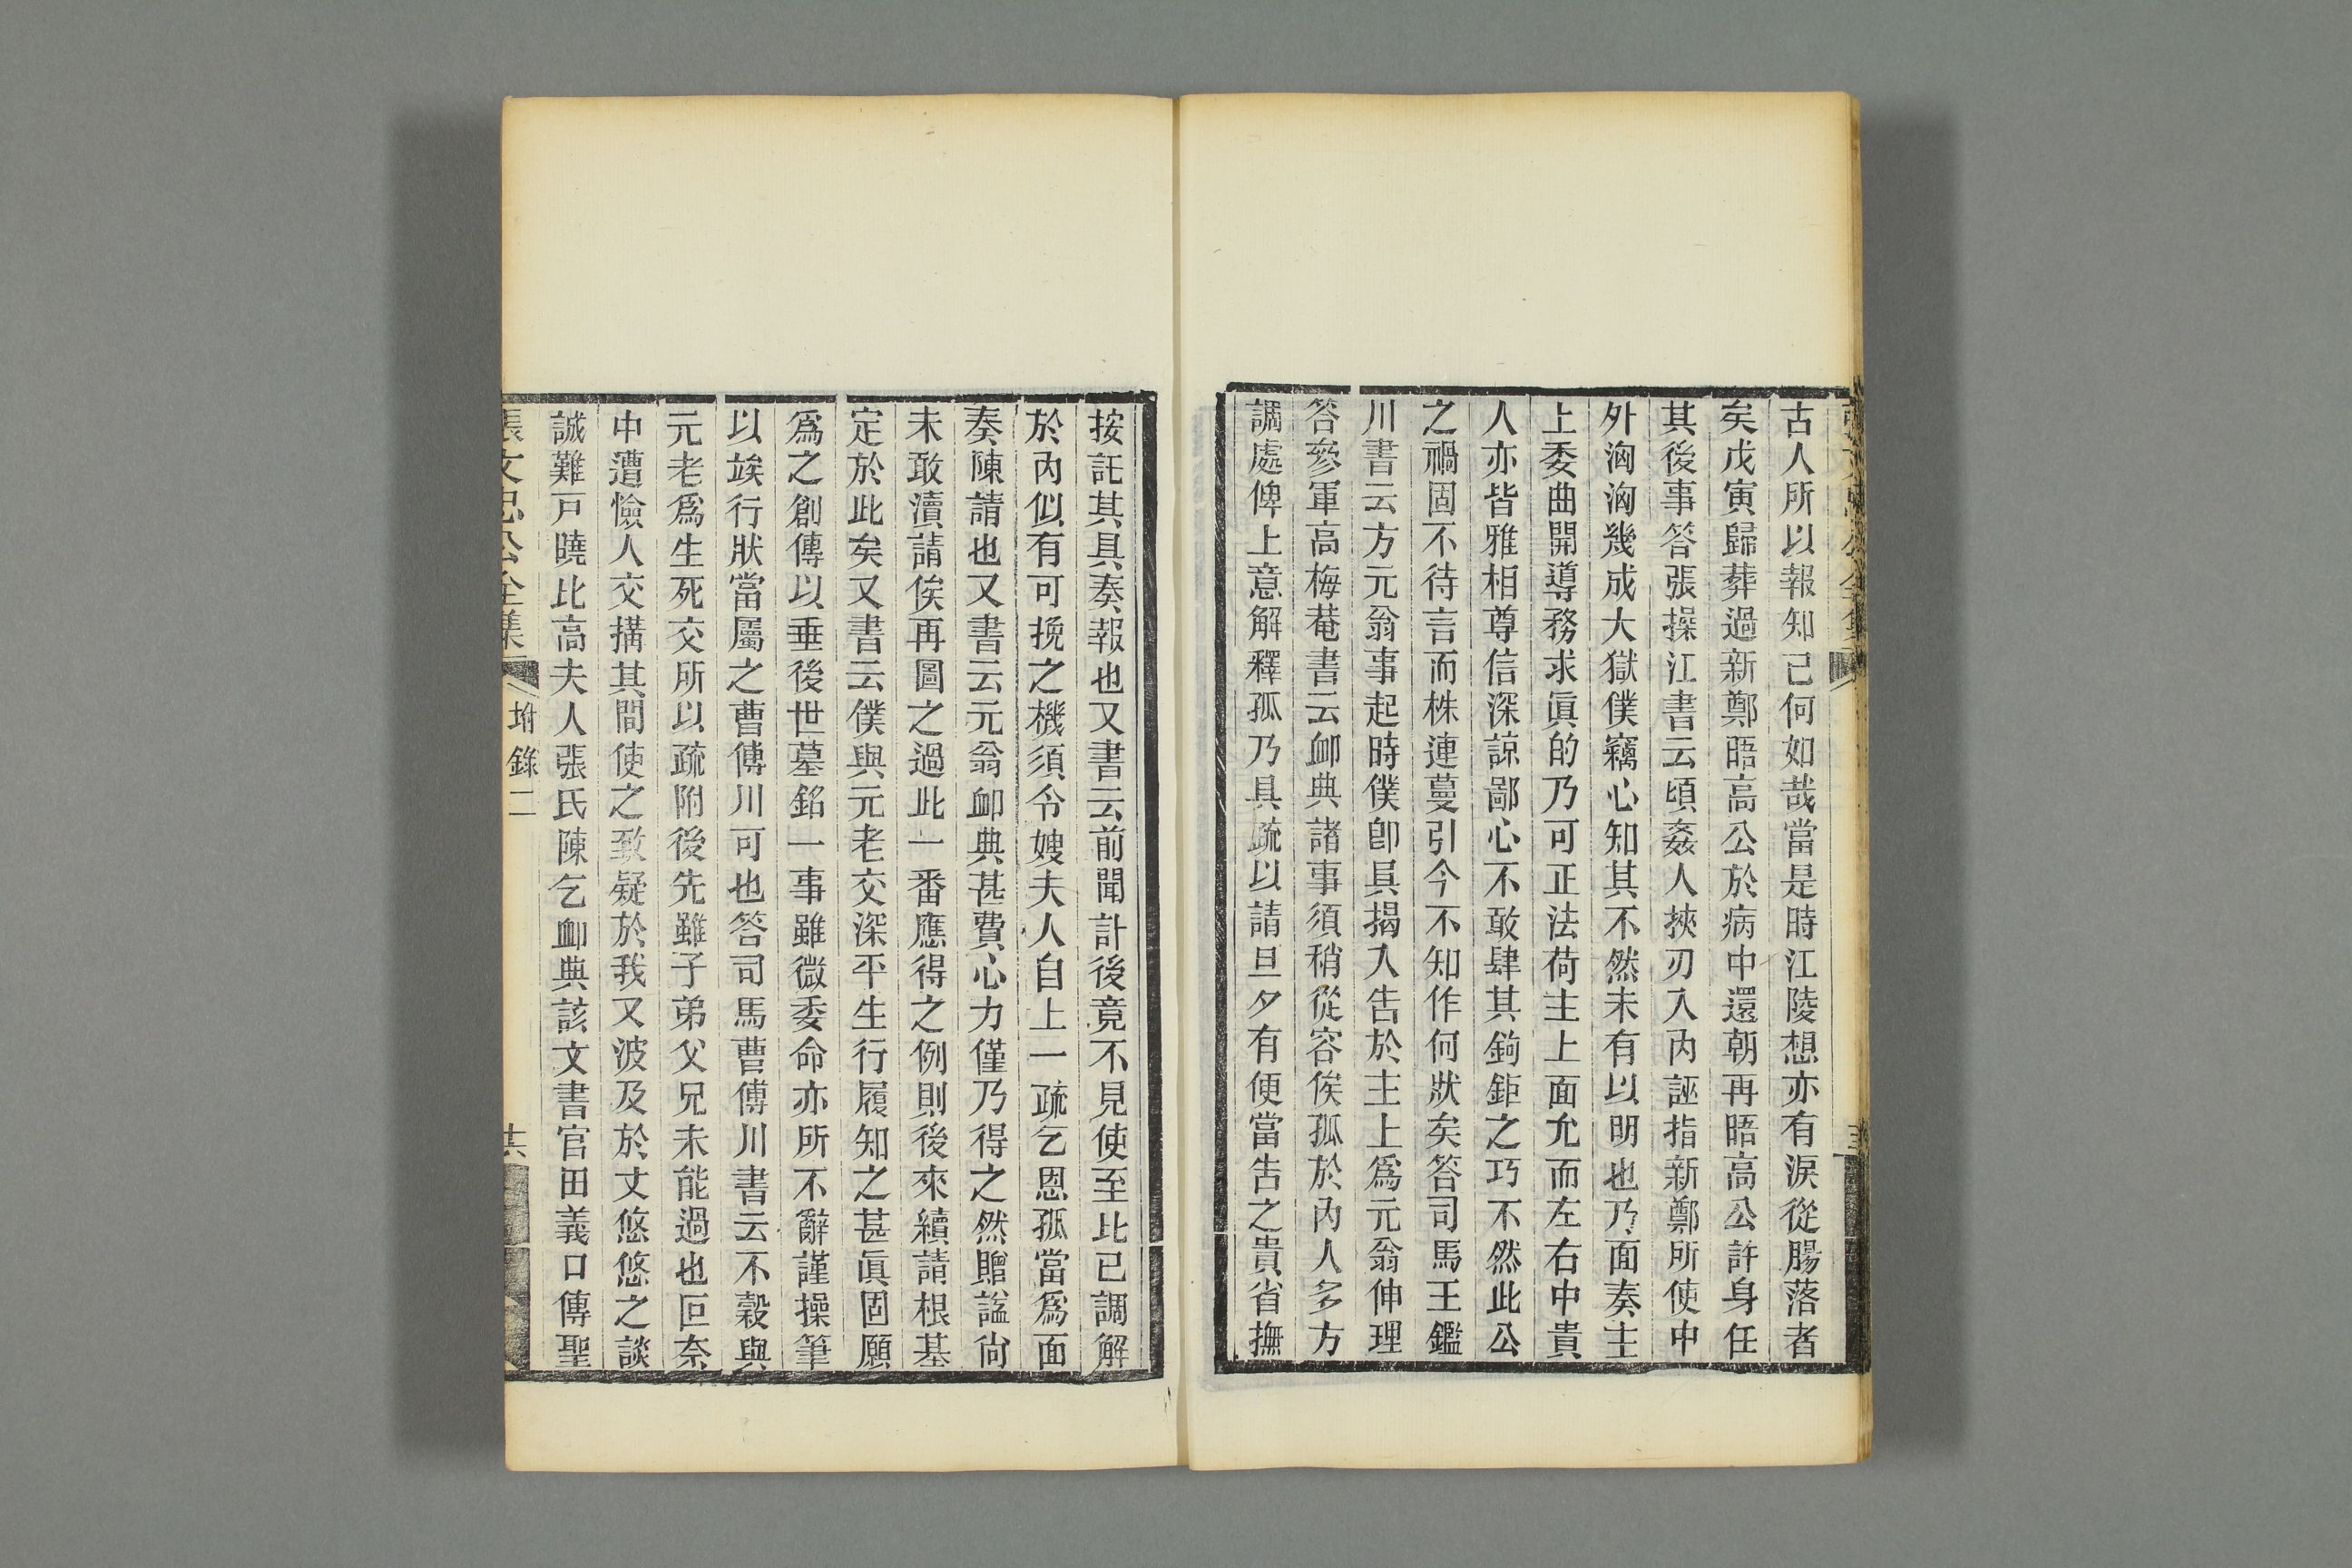 古人所以報知已何如哉當是時江陵想亦有淚從腸落者
矣戊寅歸葬過新鄭晤高公於病中還朝再晤高公許身任
其後事答張操江書云頃姦人挾刃入內誣指新鄭所使中
外洶洶幾成大獄僕竊心知其不然未有以明也乃面奏主
上委曲開導務求眞的乃可正法荷主上面允而左右中貴
人亦皆雅相尊信深諒鄙心不敢肆其鉤鉅之巧不然此公
之禍固不待言而株連蔓引今不知作何狀矣答司馬王鑑
川書云方元翁事起時僕卽具揭入告於主上爲元翁伸理
答參軍高梅菴書云卹典諸事須稍從容俟孤於內人多方
調處俾上意解釋孤乃具疏以請旦夕有便當告之貴省撫
按託其具奏報也又書云前聞訃後竟不見使至比已調解
於內似有可挽之機須令嫂夫人自上一疏乞恩孤當爲面
奏陳請也又書云元翁卹典甚費心力僅乃得之然贈諡尙
未敢瀆請俟再圖之過此一番應得之例則後來續請根基
定於此矣又書云僕與元老交深平生行履知之甚眞固願
爲之創傳以垂後世墓銘一事雖微委命亦所不辭謹操筆
以竢行狀當屬之曹傅川可也答司馬曹傅川書云不穀與
元老爲生死交所以疏附後先雖子弟父兄未能過也叵奈
中遭憸人交搆其間使之致疑於我又波及於丈悠悠之談
誠難戸曉比高夫人張氏陳乞卹典該文書官田義口傳聖
張文忠公全集 坿錄二 廿六